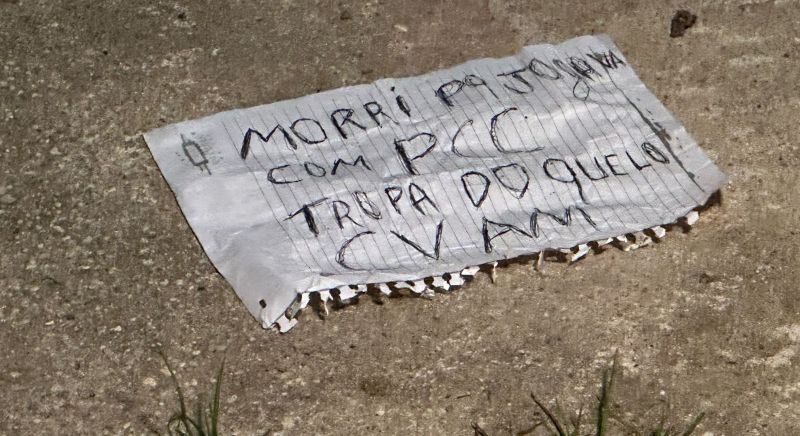 MORRi PQ JOGAVA
COM PCC
TROPA DO QUELO
CV AM